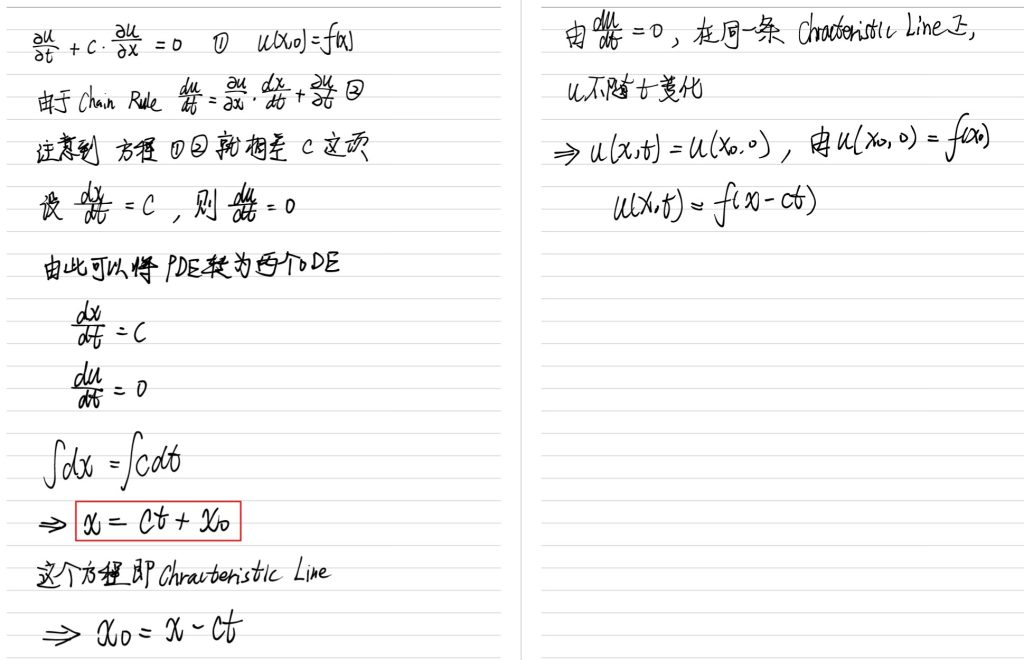 ∂u/∂t + c·∂u/∂x = 0 ① u(x,0)=f(x)
由于 Chain Rule du/dt = ∂u/∂x · dx/dt + ∂u/∂t ②
注意到 方程①②就相差 C 这项
设 dx/dt = C , 则 du/dt = 0
由此可以将 PDE转为两个ODE
dx/dt = C
du/dt = 0
∫dx = ∫cdt
⇒ x = ct + x₀
这个方程即 Chracteristic Line
⇒ x₀ = x - ct
由 du/dt = 0, 在同一条 Chracteristic Line上,
u不随t变化
⇒ u(x,t) = u(x₀,0), 由u(x₀,0) = f(x₀)
u(x,t) = f(x-ct)